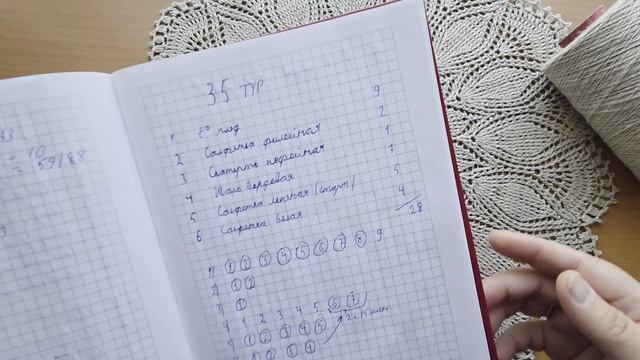 33
+ 10
59/88
3
35 тур
1 t° плед 9
2 Салфетка филейная 2
3 Скатерть кофейная 1
4 Шаль бордовая 7
5 Салфетка мятная /старт/ 5
6 Салфетка белая 4
28
1) 1 2 3 4 5 6 7 8 9
2) 1 2
3) 1
4 1 2 3 4 5 6 7
5 1 2 3 4 5
6 1 2 3 4